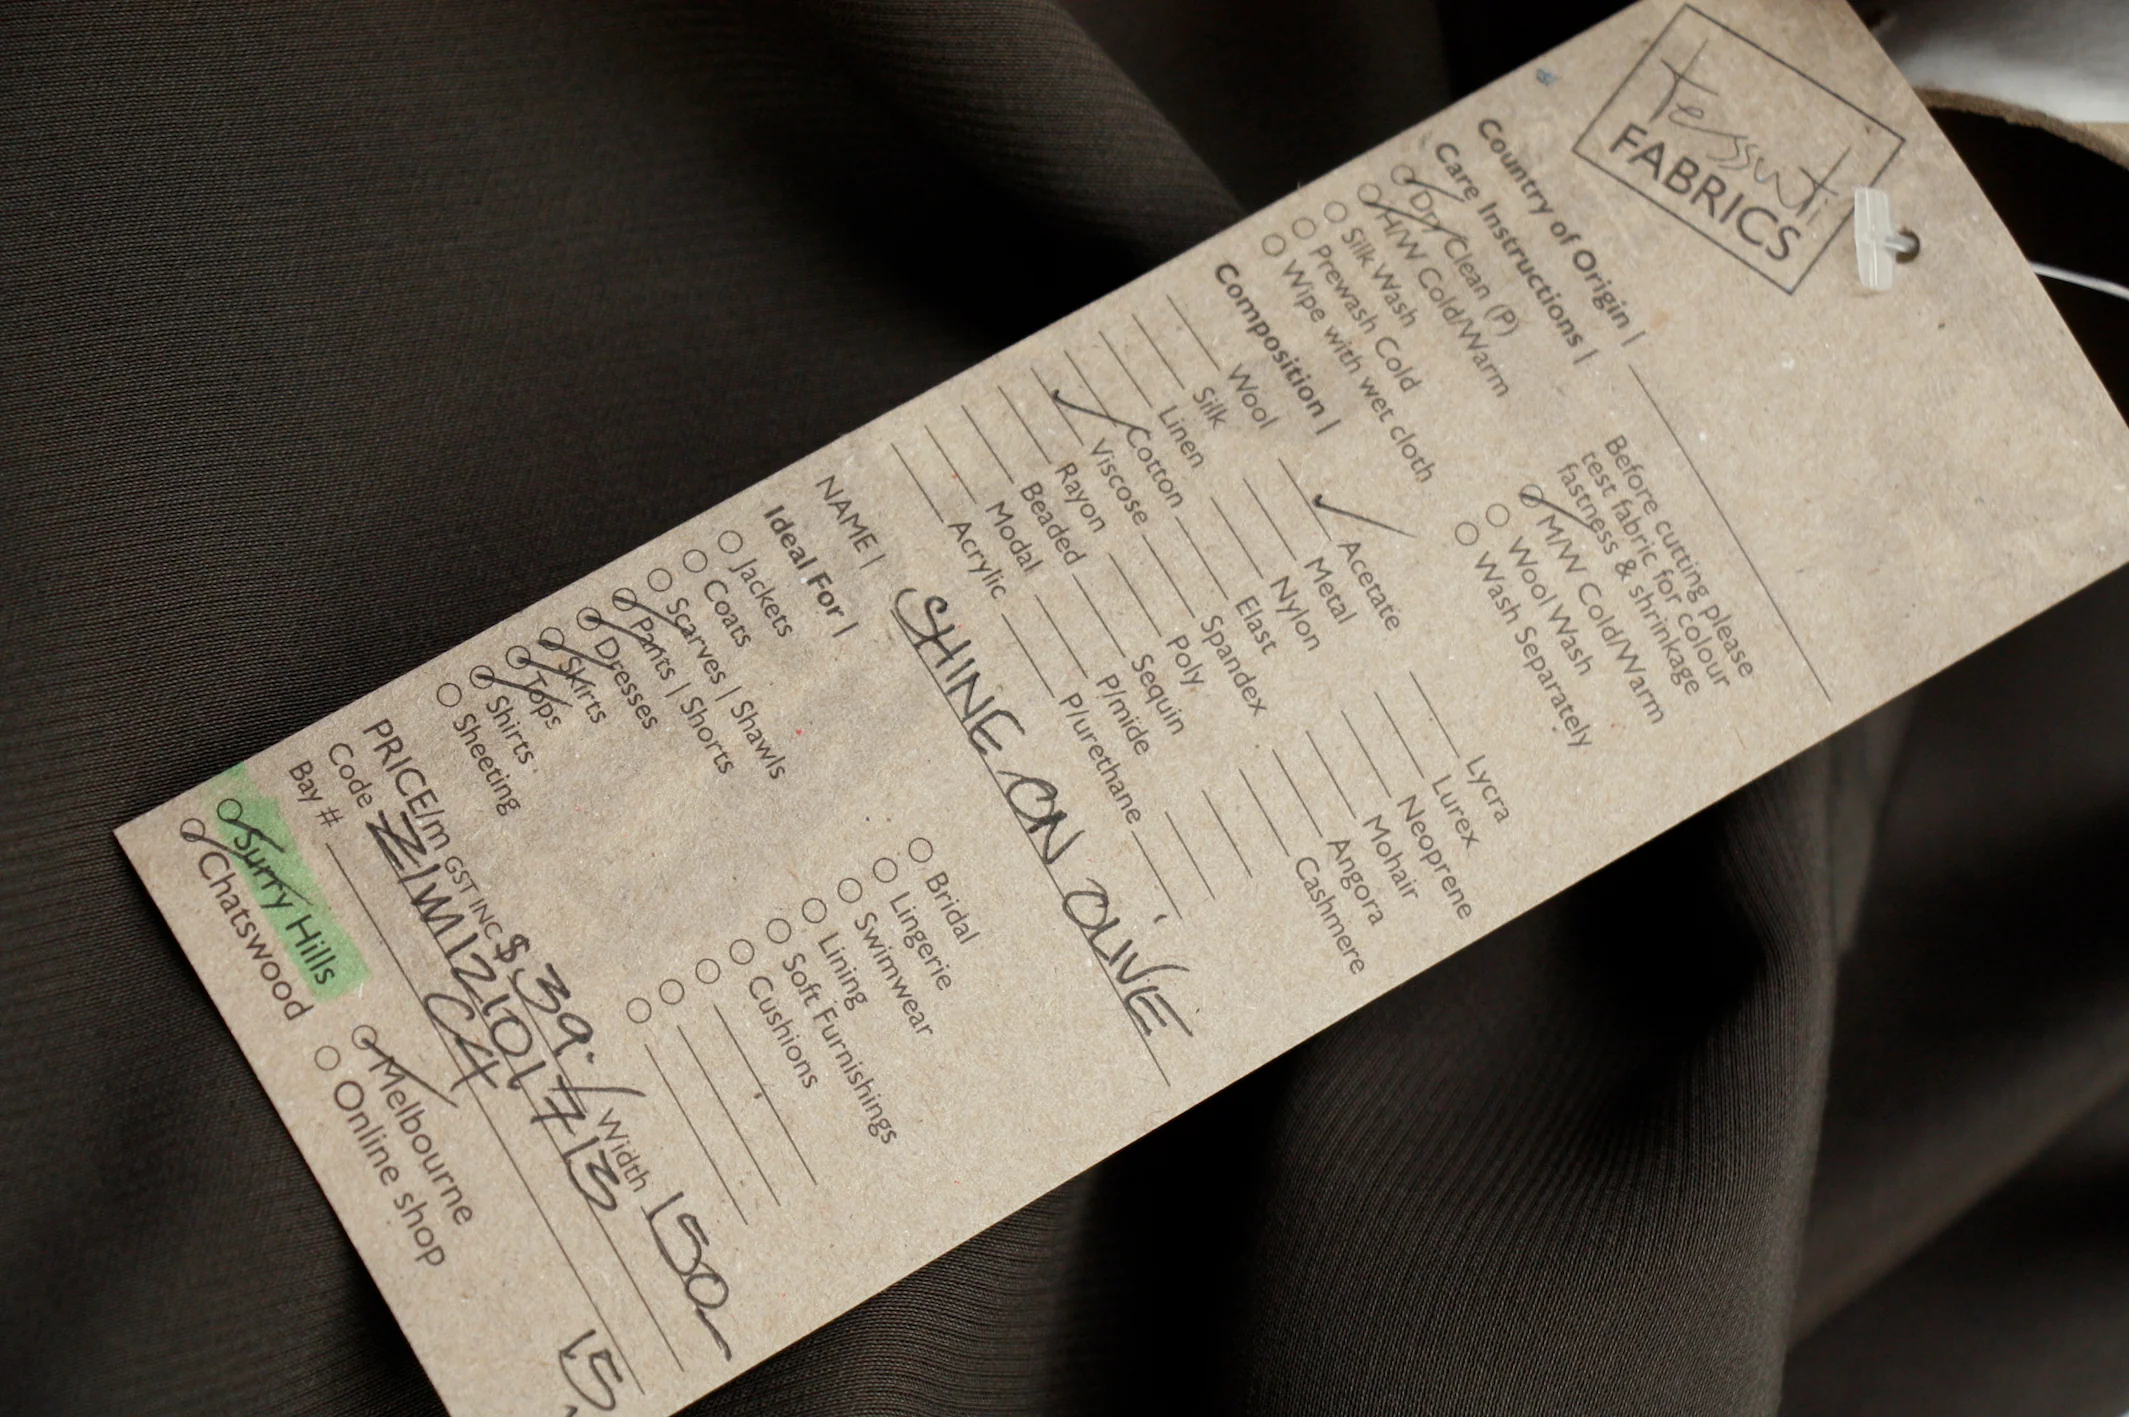 Tessuti
FABRICS
Country of Origin |
Care Instructions |
Dry Clean (P)
H/W Cold/Warm
Silk Wash
Prewash Cold
Wipe with wet cloth
Before cutting please
test fabric for colour
fastness & shrinkage
M/W Cold/Warm
Wool Wash
Wash Separately
Composition |
Wool
Silk
Linen
Cotton
Viscose
Rayon
Beaded
Modal
Acrylic
Acetate
Metal
Nylon
Elast
Spandex
Poly
Sequin
P/mide
P/urethane
Lycra
Lurex
Neoprene
Mohair
Angora
Cashmere
NAME | SHINE ON OLIVE
Ideal For |
Jackets
Coats
Scarves | Shawls
Pants | Shorts
Dresses
Skirts
Tops
Shirts
Sheeting
Bridal
Lingerie
Swimwear
Lining
Soft Furnishings
Cushions
PRICE/m GST INC $39.- / Width 150
Code ZIM12101713
Bay # C4 15
Surry Hills
Chatswood
Melbourne
Online shop